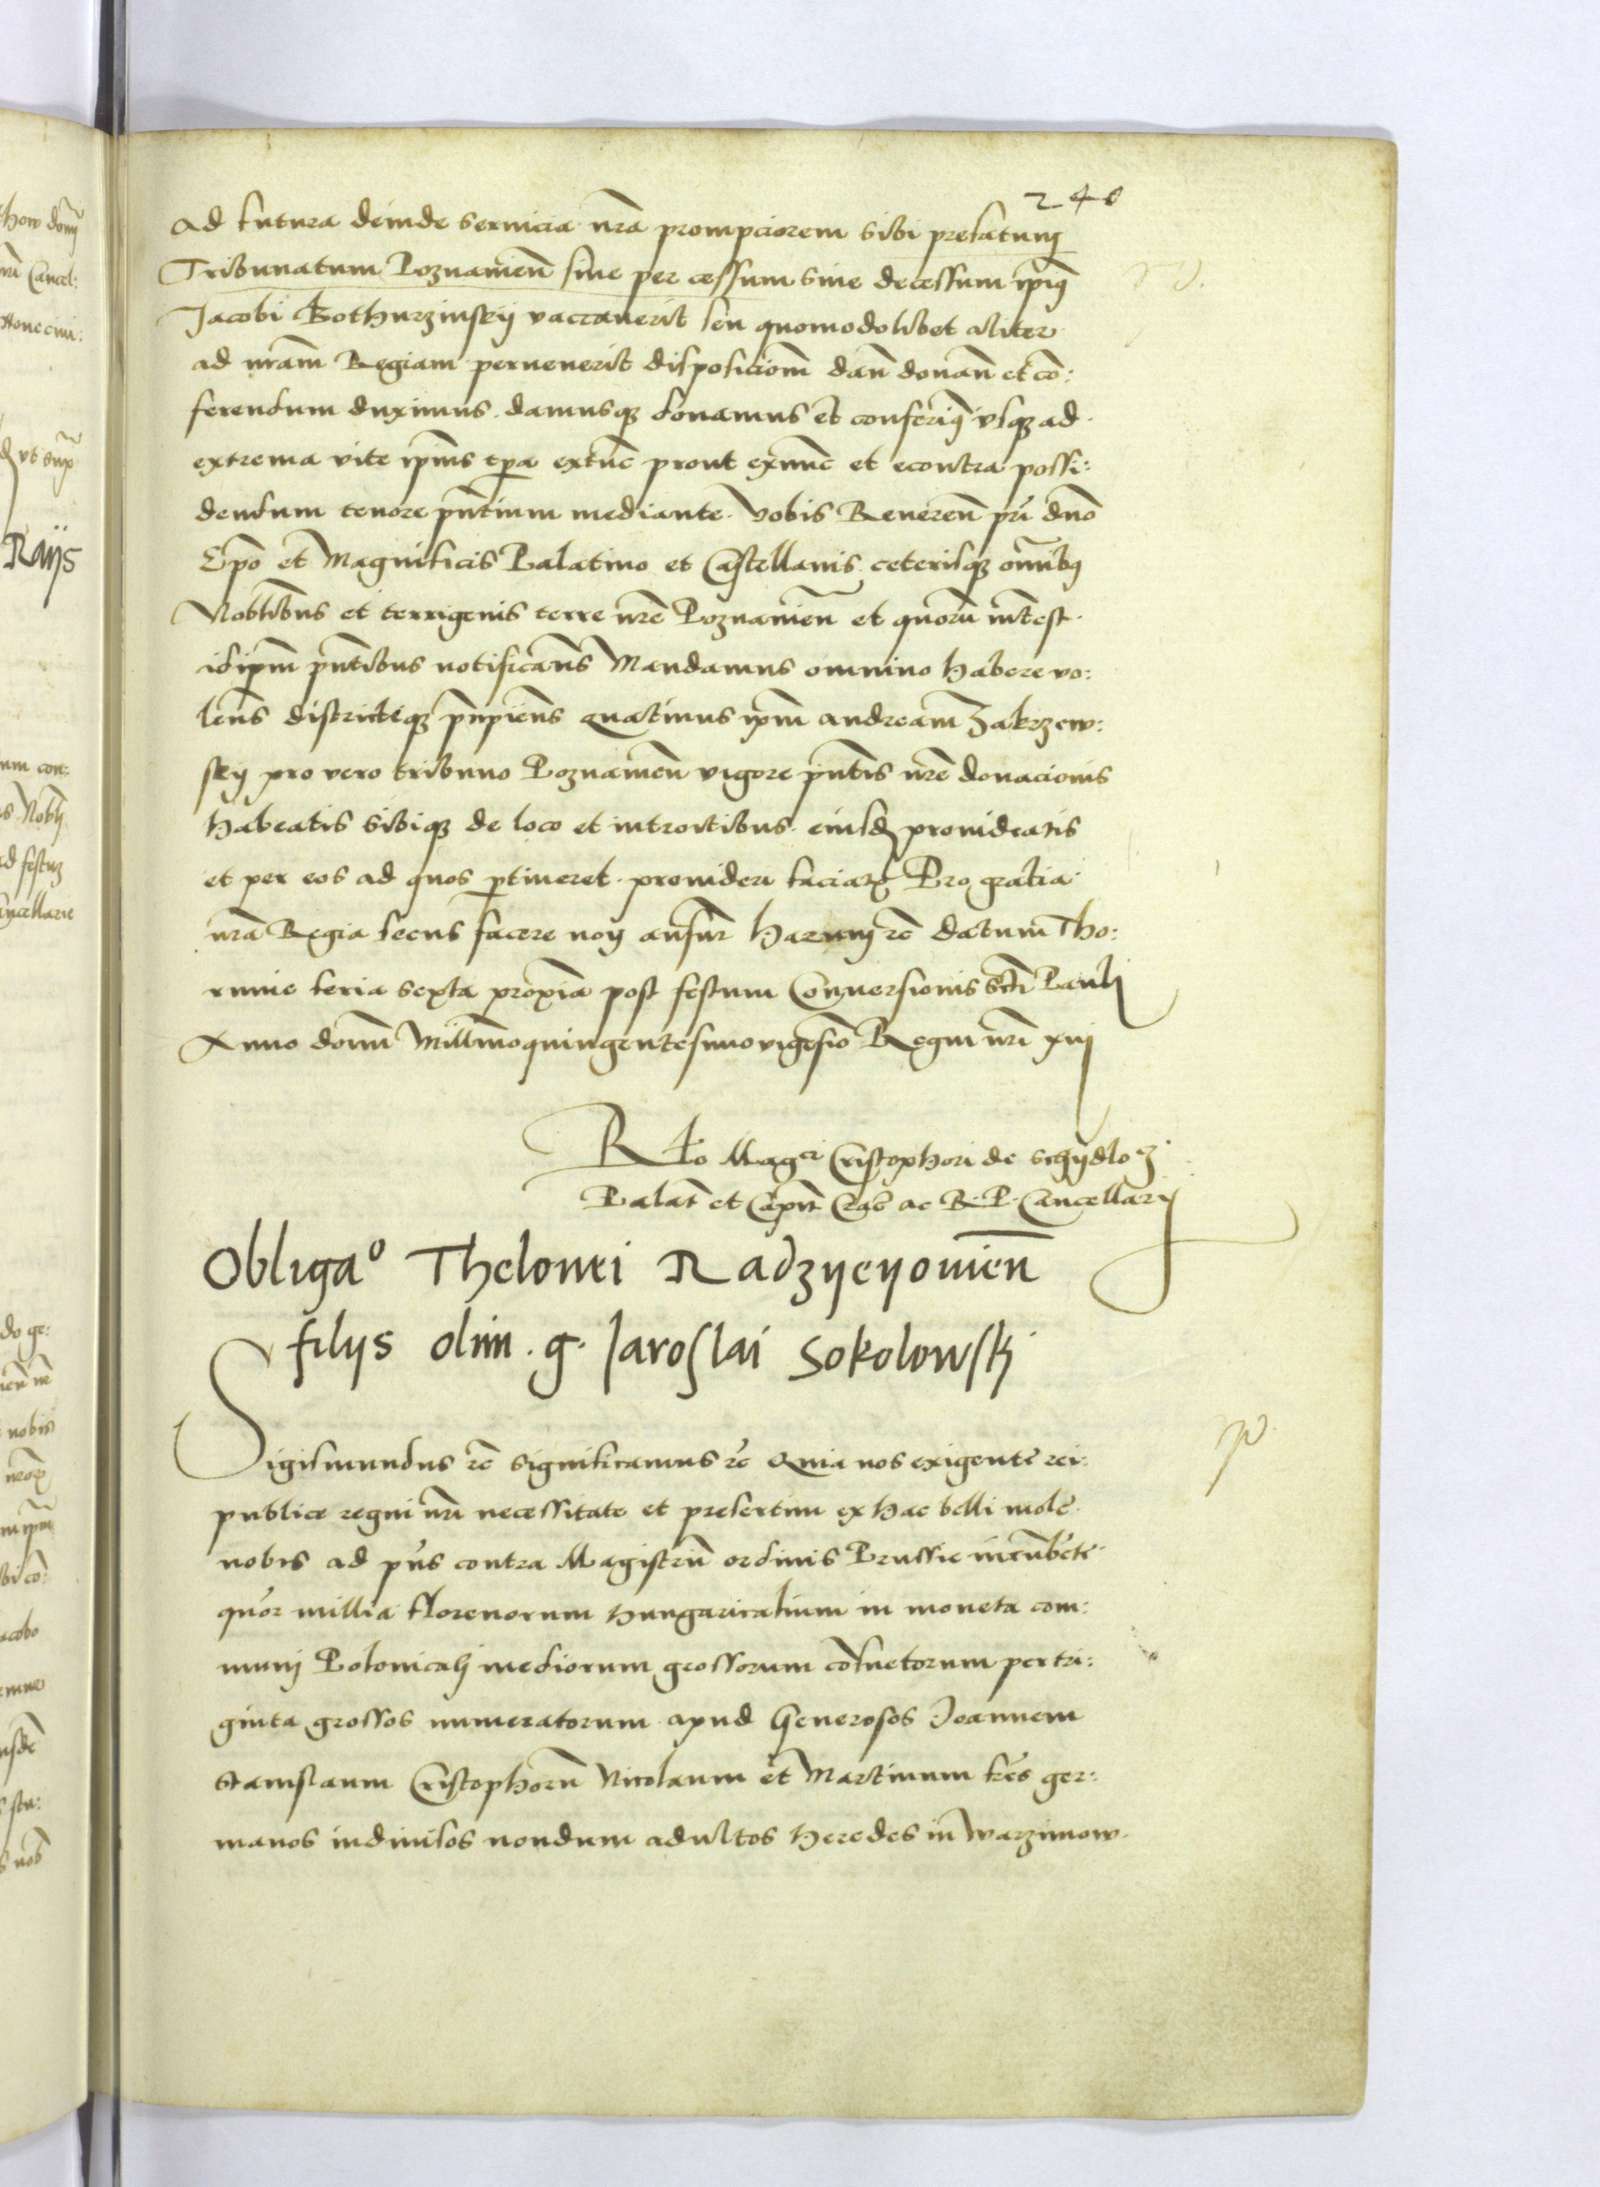 240
ad futura deinde servicia nr̃a prompciorem sibi prefatum
Tribunatum Poznanieñ sive per cessum sive decessum ip̃iꝯ
Jacobi Bothurzinskij vaccaverit seu quomodolibet aliter
ad nr̃am Regiam pervenerit disposiciom̃ dañ donañ et cõ:
ferendum duximus. damusqꝫ donamus et conferimꝯ usqꝫ ad
extrema vite ip̃ius tp̃a extũc prout exnũc et econtra possi:
dendum tenore p̃ntium mediante. Vobis Revereñ pr̃i dño
Ep̃o et Magnificis Palatino et Castellanis ceterisqꝫ om̃ibꝯ
Nobilibus et terrigenis terre nr̃e Poznanieñ et quorũ int̃est
idip̃m p̃ntibus notificañs Mandamus omnino habere vo:
leñs districteqꝫ p̃cipieñs Quatinus ip̃m Andream Zakrzew:
skij pro vero tribuno Poznanieñ vigore p̃ntis nr̃e donacionis
habeatis sibiqꝫ de loco et introitibus eiusdꝫ provideatis
et per eos ad quos p̱tineret provideri faciatis Pro gratia
nr̃a Regia secus facere non ausur̃ Harum rc̃ datum Tho:
runie feria sexta proxĩa post festum Conversionis Scti Pauli
Anno domĩ Mill̃moquingentesimovigesĩo Regni nr̃i xiiij
R̃lo Mag̃ci Cristophori de Schydlo:
Palat̃ et Capit̃ Crac̃ ac R. P. Cancellarij
Obligaº Thelonei Radzyeyovieñ
filijs olim. g. Jaroslai Sokolowskj
Sigismundus rc̃ significamus rc̃ Quia nos exigente rei:
publice regni nr̃i necessitate et presertim ex hac belli mole
nobis ad p̃ns contra Magistrũ ordinis Prussie incũbente
qũor millia florenorum hungaricalium in moneta com:
muni Polonicalj mediorum grossorum cõsuetorum per tri:
ginta grossos numeratorum apud Generosos Joannem
Stanislaum Cristophorũ Nicolaum et Martinum fr̃es ger:
manos indivisos nondum adultos heredes in Warzimow.